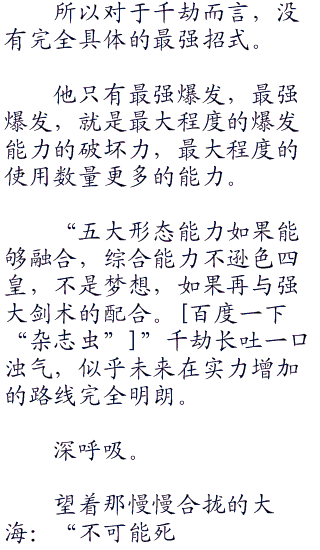 所以对于千劫而言，没
有完全具体的最强招式。
他只有最强爆发，最强
爆发，就是最大程度的爆发
能力的破坏力，最大程度的
使用数量更多的能力。
“五大形态能力如果能
够融合，综合能力不逊色四
皇，不是梦想，如果再与强
大剑术的配合。[百度一下
“杂志虫”]”千劫长吐一口
浊气，似乎未来在实力增加
的路线完全明朗。
深呼吸。
望着那慢慢合拢的大
海：“不可能死